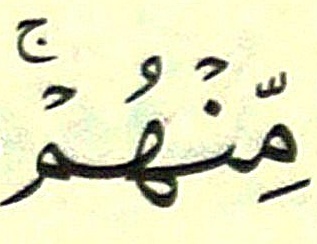 مِّنْهُمْ ۚ